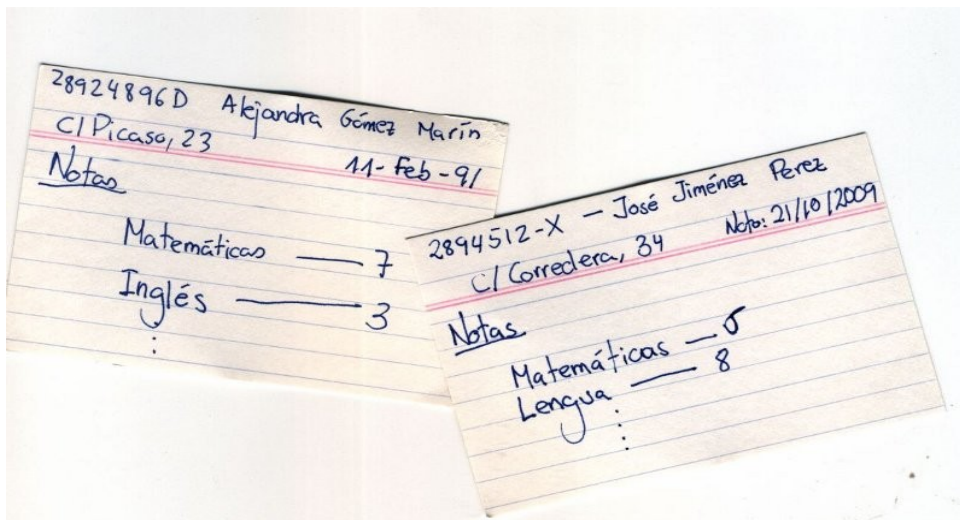 28924896D Alejandra Gómez Marín
C/ Picaso, 23
11-Feb-91
Notas
Matemáticas — 7
Inglés — 3
⋮
2894512-X — José Jiménez Perez
C/ Corredera, 34 Nato: 21/10/2009
Notas
Matemáticas —
Lengua — 8
⋮